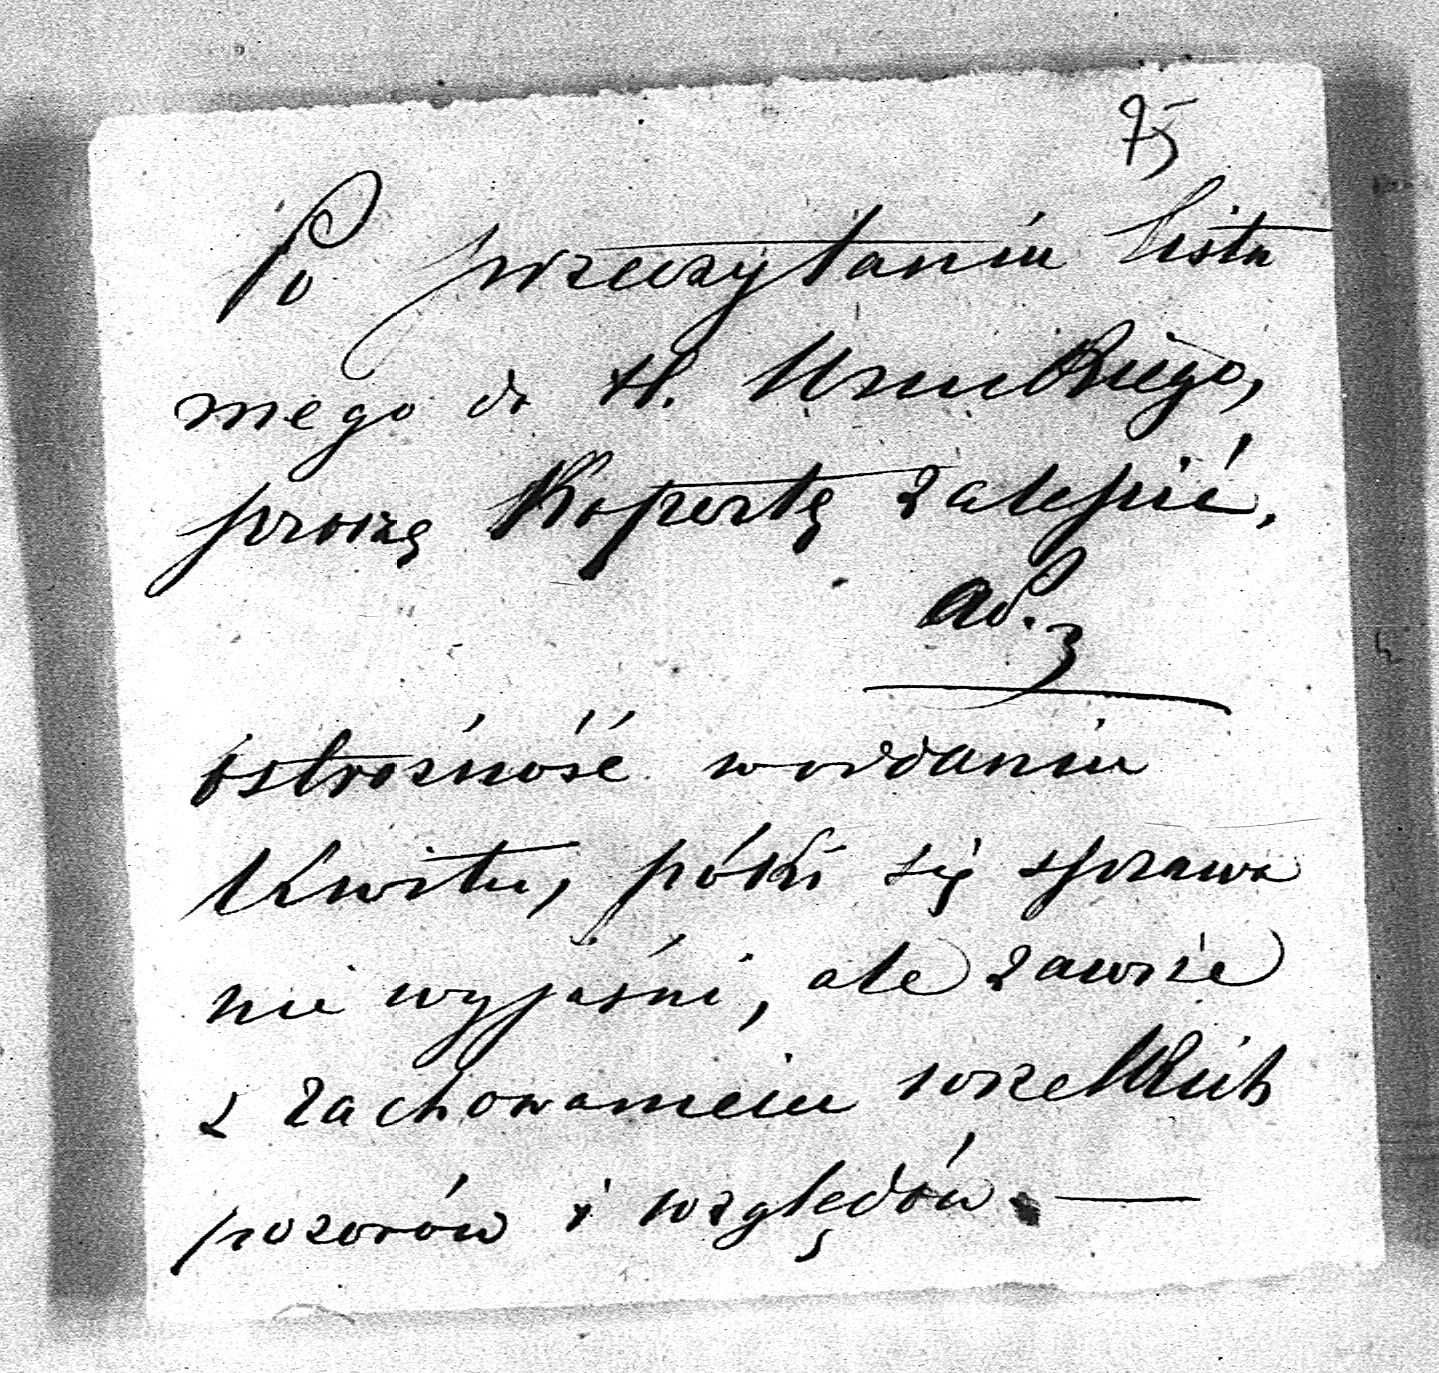 75
Po przeczytaniu listu
mego do H. Umickiego,
proszę Kopertę zalepić.
ostrożność w oddaniu
Kwitu, póki się sprawa
nie wyjaśni, ale zawsze
z zachowaniem wszelkich
pozorów i względów. —